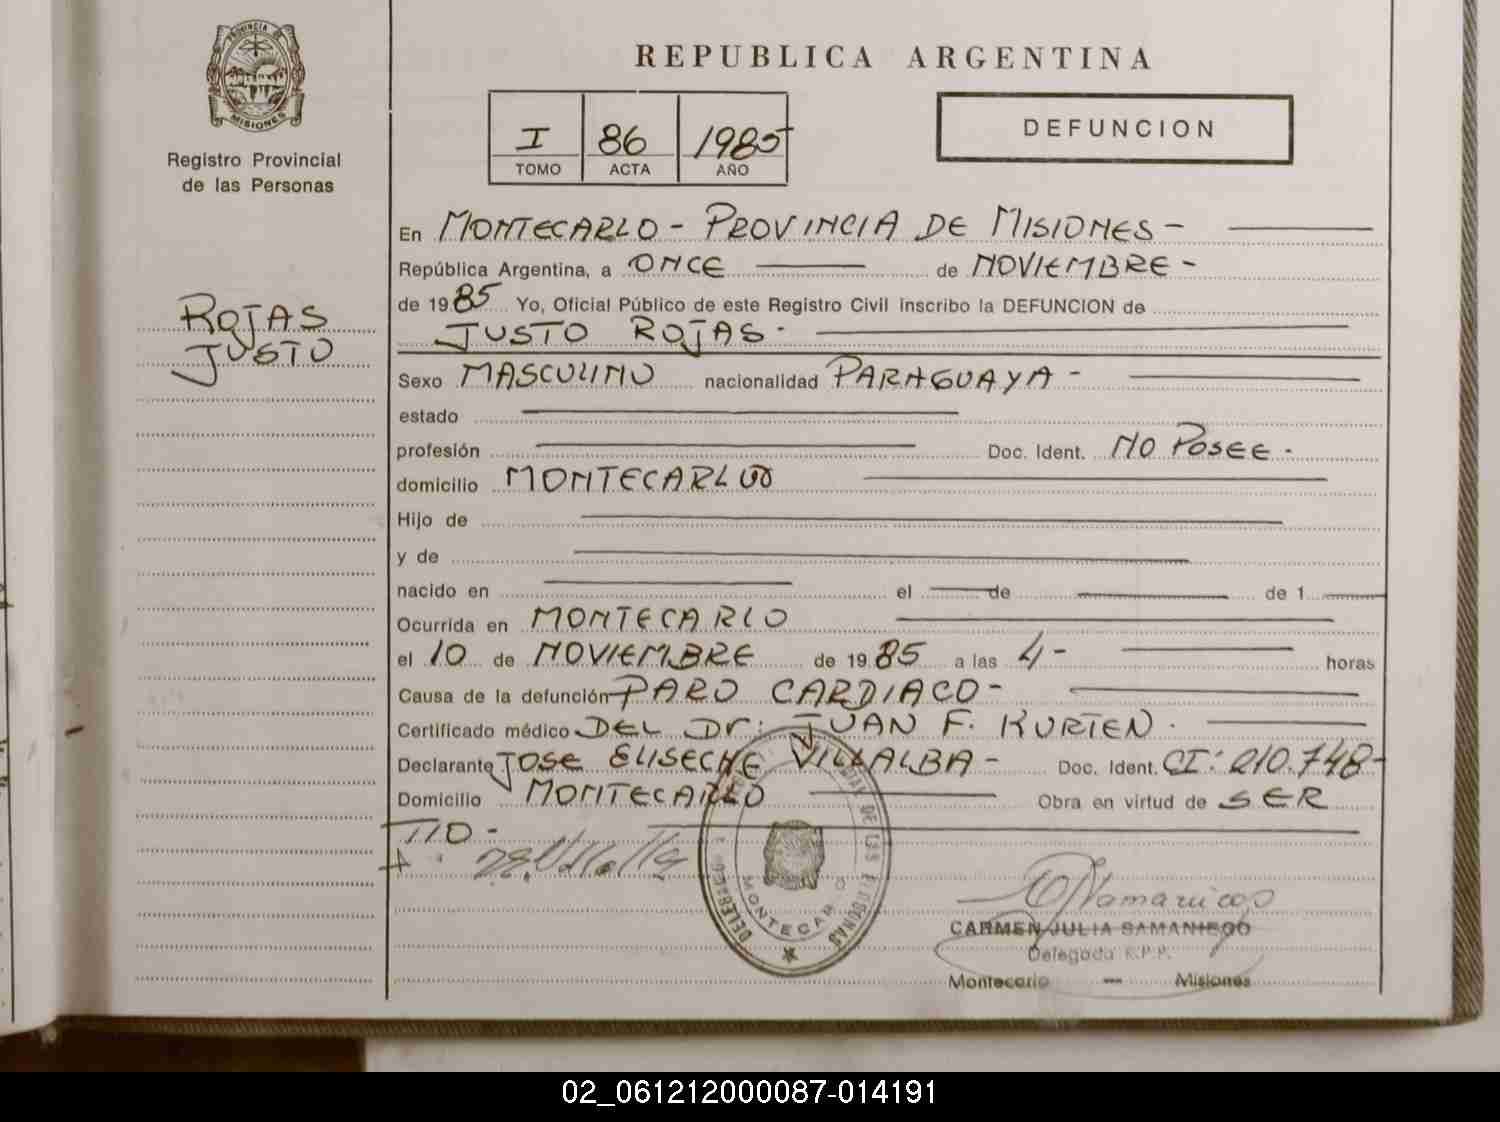 PROVINCIA DE
MISIONES
Registro Provincial
de las Personas
ROJAS
JUSTO
REPUBLICA ARGENTINA
I 86 1985
TOMO ACTA AÑO
DEFUNCION
En MONTECARLO - PROVINCIA DE MISIONES -
República Argentina, a ONCE de NOVIEMBRE -
de 1985 Yo, Oficial Público de este Registro Civil inscribo la DEFUNCION de
JUSTO ROJAS -
Sexo MASCULINO nacionalidad PARAGUAYA -
estado
profesión Doc. Ident. NO POSEE -
domicilio MONTECARLO
Hijo de
y de
nacido en el de de 1
Ocurrida en MONTECARLO
el 10 de NOVIEMBRE de 1985 a las 4 - horas
Causa de la defunción PARO CARDIACO -
Certificado médico DEL Dr: JUAN F. KURTEN.
Declarante JOSE ELISECHE VILLALBA - Doc. Ident. CI: 210.748 -
Domicilio MONTECARLO Obra en virtud de SER
TIO -
MONTECARLO
CARMEN JULIA SAMANIEGO
Delegada R.P.P.
Montecarlo — Misiones
02_061212000087-014191